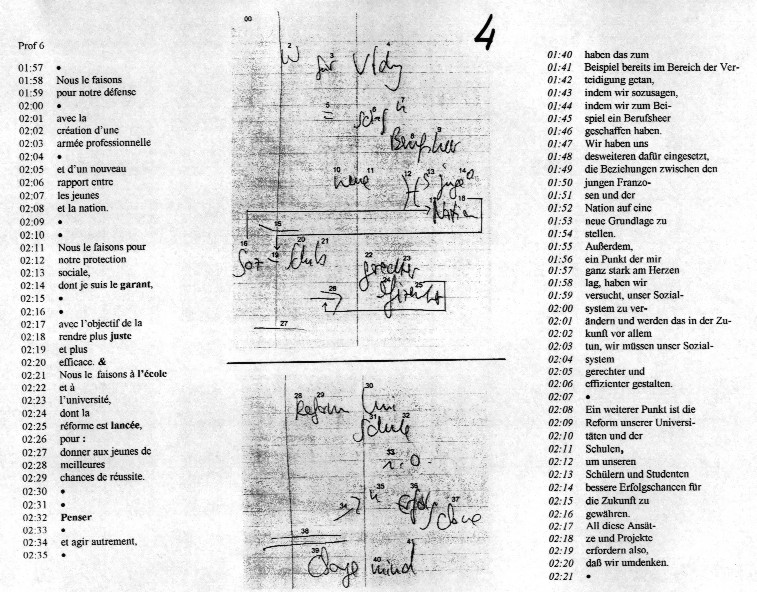 Prof 6
01:57 •
01:58 Nous le faisons
01:59 pour notre défense
02:00 •
02:01 avec la
02:02 création d'une
02:03 armée professionnelle
02:04 •
02:05 et d'un nouveau
02:06 rapport entre
02:07 les jeunes
02:08 et la nation.
02:09 •
02:10 •
02:11 Nous le faisons pour
02:12 notre protection
02:13 sociale,
02:14 dont je suis le garant,
02:15 •
02:16 •
02:17 avec l'objectif de la
02:18 rendre plus juste
02:19 et plus
02:20 efficace. &
02:21 Nous le faisons à l'école
02:22 et à
02:23 l'université,
02:24 dont la
02:25 réforme est lancée,
02:26 pour :
02:27 donner aux jeunes de
02:28 meilleures
02:29 chances de réussite.
02:30 •
02:31 •
02:32 Penser
02:33 •
02:34 et agir autrement,
02:35 •
00
4
2 3 4
W für Vtdg
5 6 7
=
8 9
Berufsheer
10 11 12 13 14
neue
17 18
Nation
15
16 19 20 21
Soz
22 23
gerechter
24 25
effizienter
26
27
28 29 30
Reform Uni
31 32
Schule
33
34 35 36 37
erfolg
38
39 40 41
mind
01:40 haben das zum
01:41 Beispiel bereits im Bereich der Ver-
01:42 teidigung getan,
01:43 indem wir sozusagen,
01:44 indem wir zum Bei-
01:45 spiel ein Berufsheer
01:46 geschaffen haben.
01:47 Wir haben uns
01:48 desweiteren dafür eingesetzt,
01:49 die Beziehungen zwischen den
01:50 jungen Franzo-
01:51 sen und der
01:52 Nation auf eine
01:53 neue Grundlage zu
01:54 stellen.
01:55 Außerdem,
01:56 ein Punkt der mir
01:57 ganz stark am Herzen
01:58 lag, haben wir
01:59 versucht, unser Sozial-
02:00 system zu ver-
02:01 ändern und werden das in der Zu-
02:02 kunft vor allem
02:03 tun, wir müssen unser Sozial-
02:04 system
02:05 gerechter und
02:06 effizienter gestalten.
02:07 •
02:08 Ein weiterer Punkt ist die
02:09 Reform unserer Universi-
02:10 täten und der
02:11 Schulen,
02:12 um unseren
02:13 Schülern und Studenten
02:14 bessere Erfolgschancen für
02:15 die Zukunft zu
02:16 gewähren.
02:17 All diese Ansät-
02:18 ze und Projekte
02:19 erfordern also,
02:20 daß wir umdenken.
02:21 •